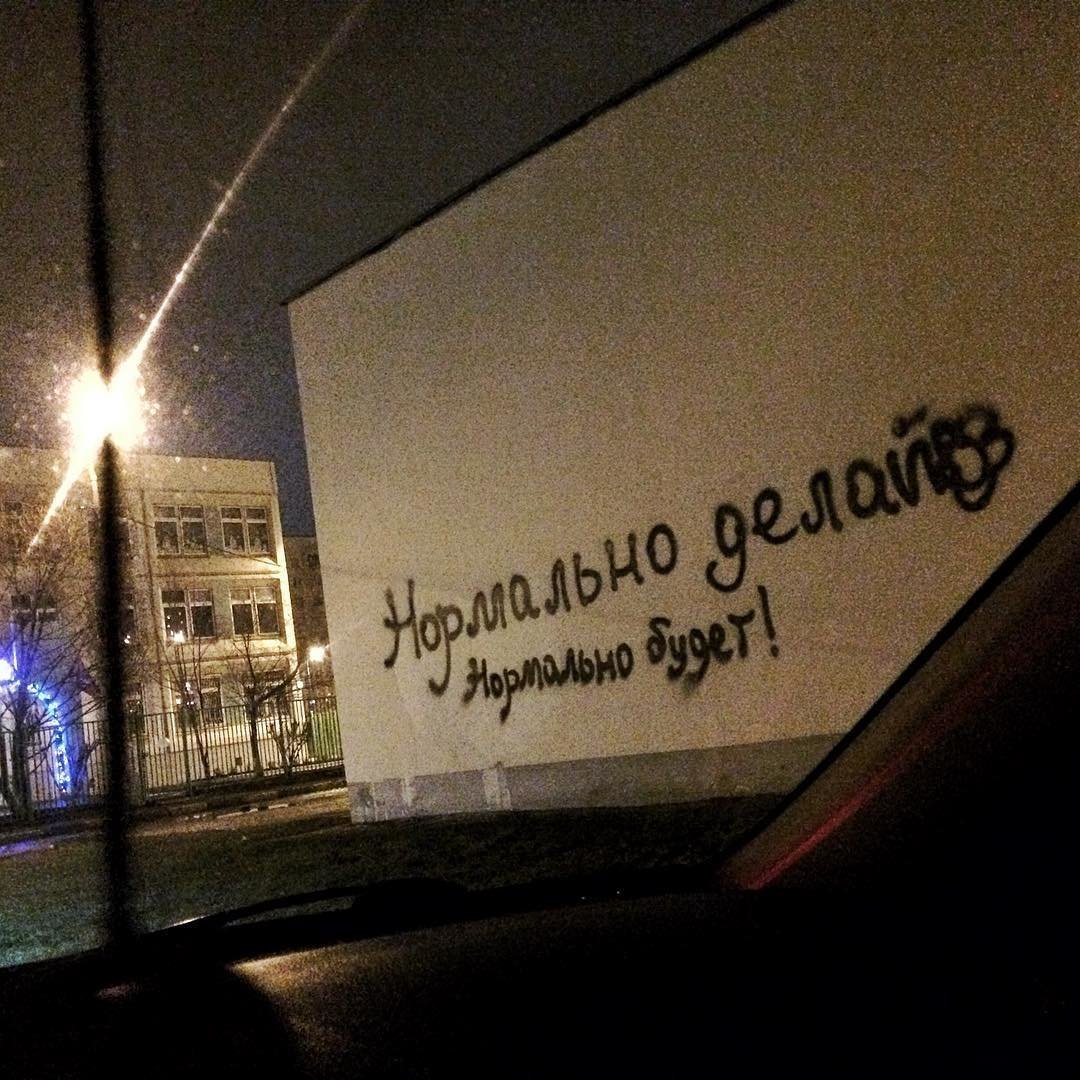 Нормально делай
Нормально будет!